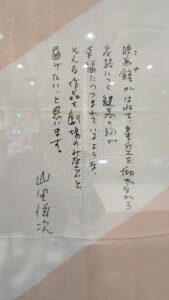 映画館がはねて、星空を仰ぎながら
家路につく観客の胸が
幸福につつまれているような、
そんな作品を劇場のみなさんと
届けたい、と思います。
山田洋次